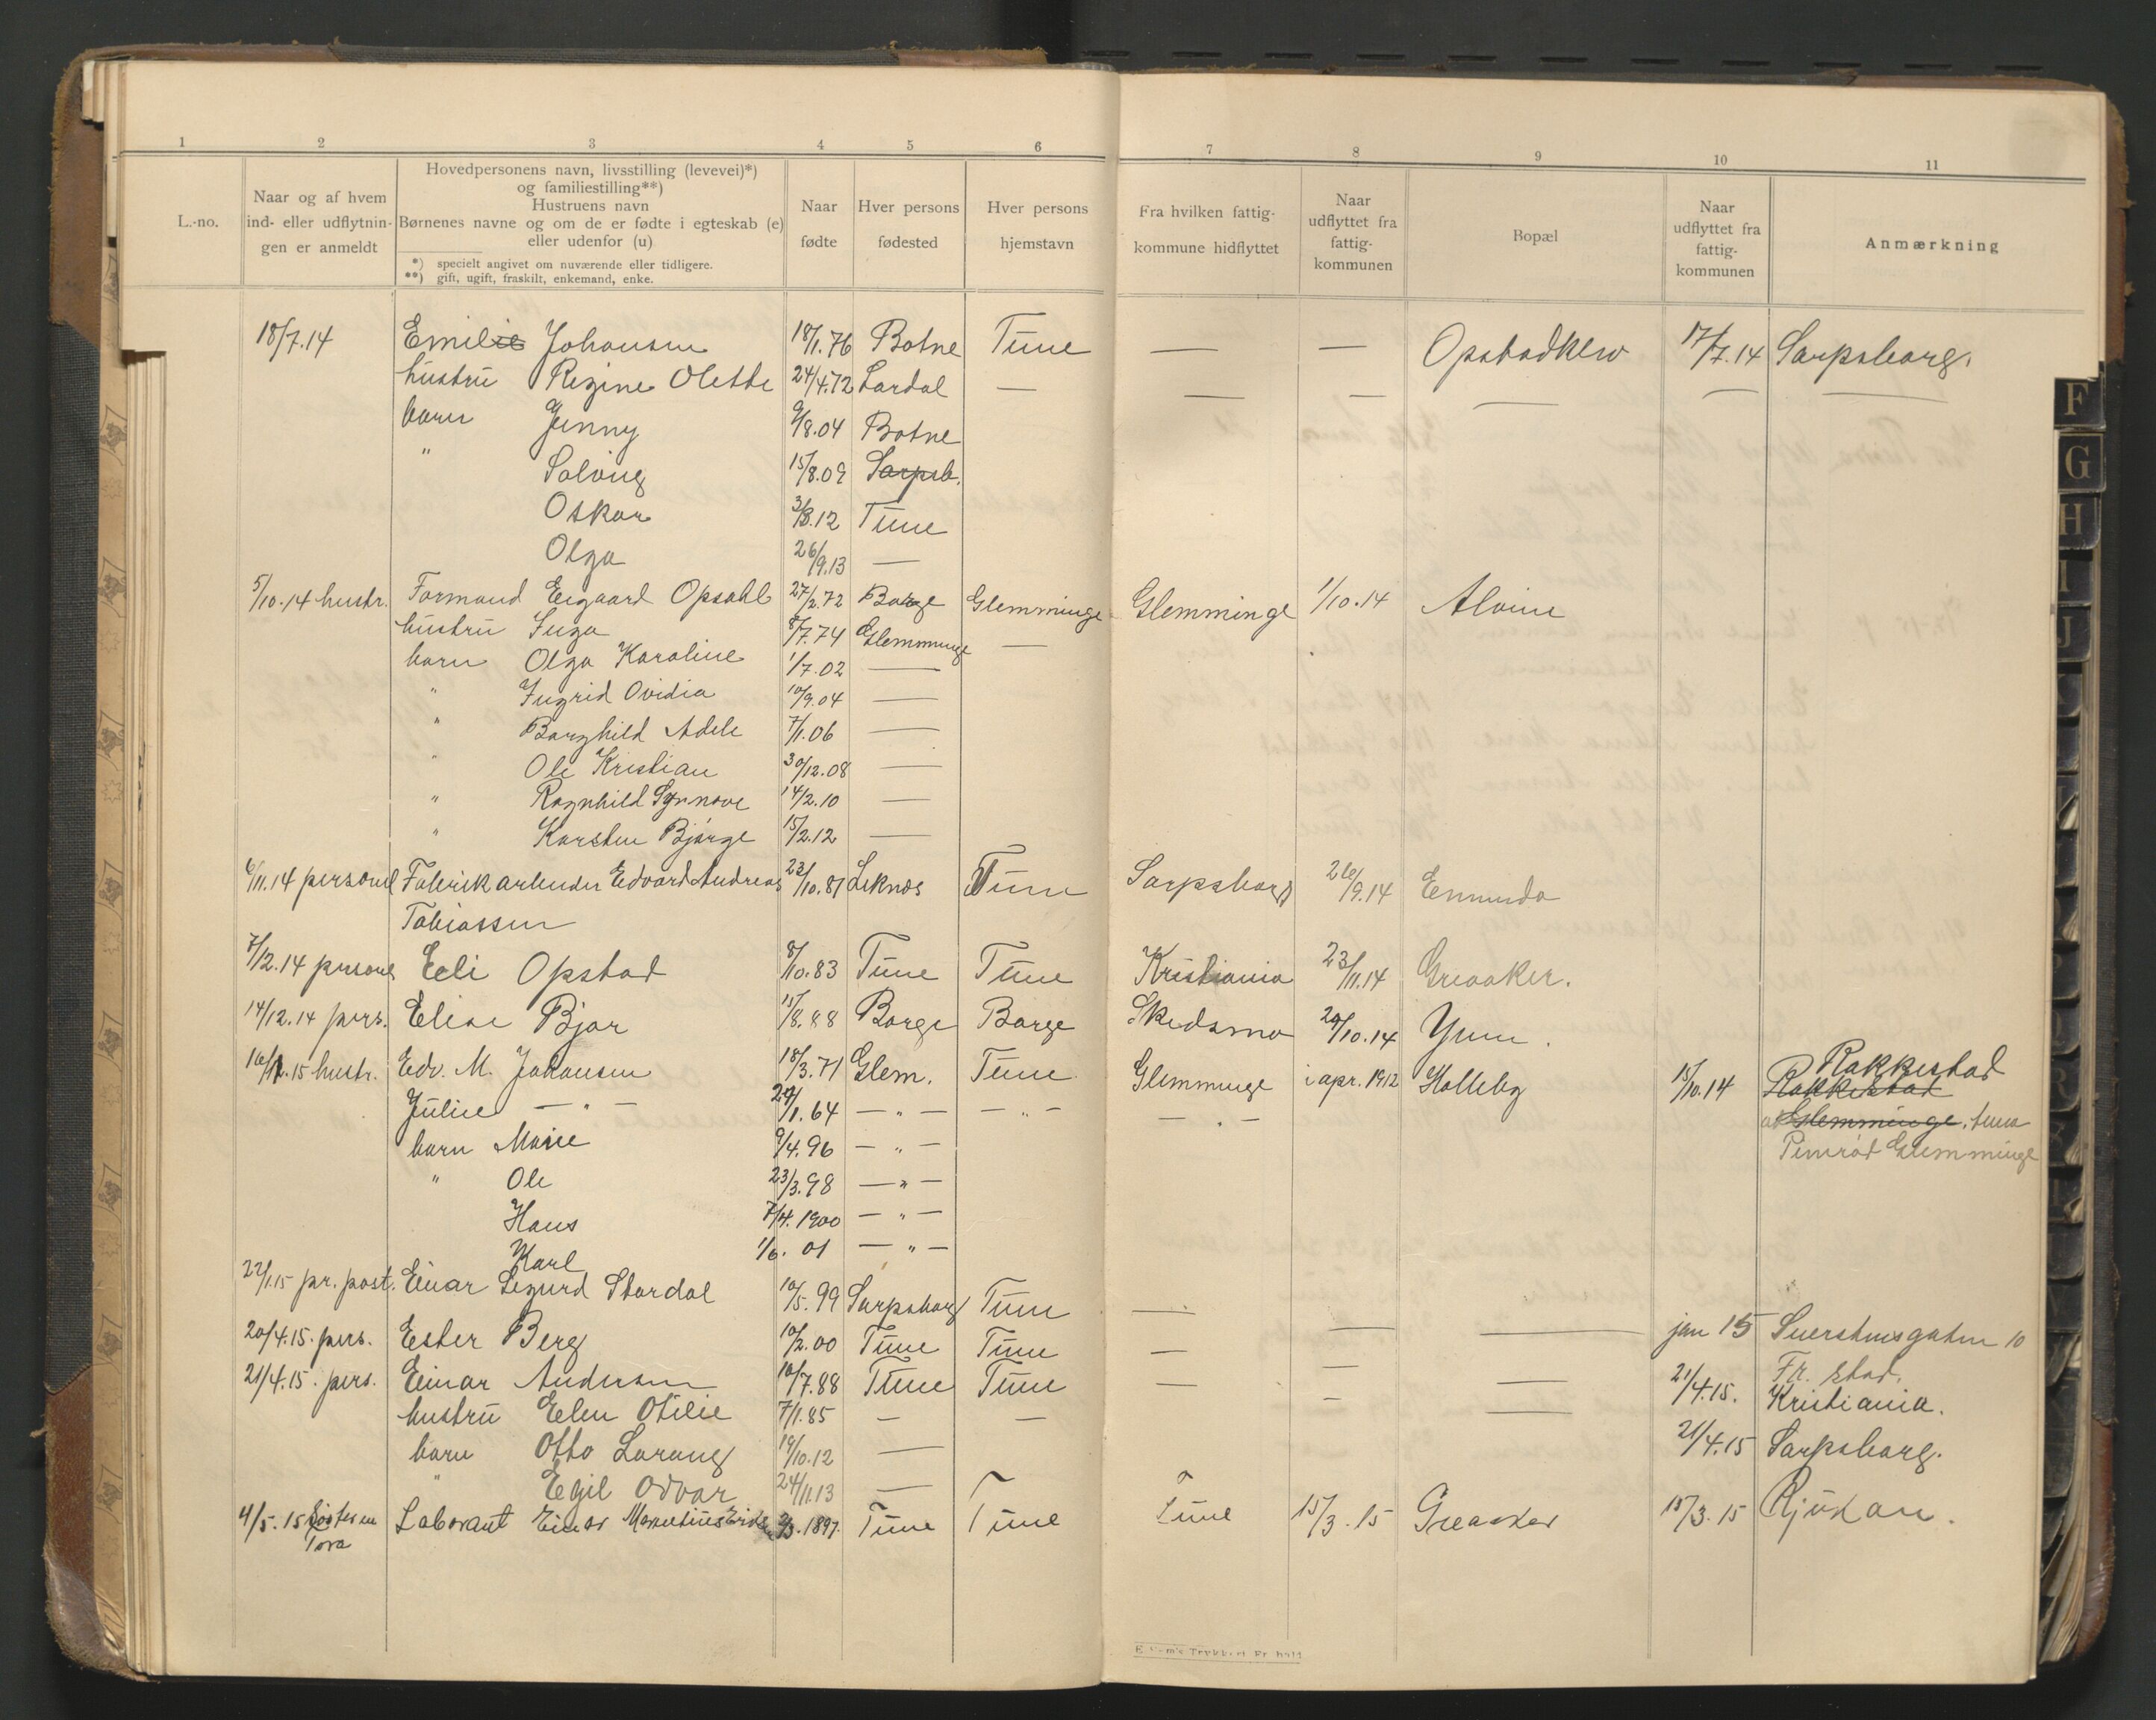 1 2 3 4 5 6 7 8 9 10 11
L.-no.
Naar og af hvem
ind- eller udflytnin-
gen er anmeldt
Hovedpersonens navn, livsstilling (levevei)*)
og familiestilling**)
Hustruens navn
Børnenes navne og om de er fødte i egteskab (e)
eller udenfor (u)
*) specielt angivet om nuværende eller tidligere.
**) gift, ugift, fraskilt, enkemand, enke.
Naar
fødte
Hver persons
fødested
Hver persons
hjemstavn
Fra hvilken fattig-
kommune hidflyttet
Naar
udflyttet fra
fattig-
kommunen
Bopæl
Naar
udflyttet fra
fattig-
kommunen
Anmærkning
18/7.14 Emilie Johansen 18/1.76 Botne Tune — — 17/7.14 Sarpsborg.
hustru Regine Olette 24/4.72 Lardal — — — — — —
barn Jenny 9/8.04 Botne
" Solveig 15/8.09 Sarpsb.
Oskar 3/8.12 Tune
Olga 26/9.13 —
5/10.14 hustr. Formand Eigaard Opsahl 27/2.72 Borge Glemminge Glemminge 1/10.14 Alvim
hustru Inga 8/7.74 Glemminge —
barn Olga Karoline 1/7.02 —
" Ingrid Ovidia 10/9.04 —
" Borghild Adele 7/1.06 —
" Ole Kristian 30/12.08 —
" Ragnhild Synnøve 14/2.10 —
" Karsten Bjørge 15/2.12 —
6/11.14 personl Fabrikarbeider Edvard Andreas 23/10.81 Leknes Tune Sarpsborg 26/9.14 Enunda
Tobiassen
7/12.14 personl Eeli Opstad 8/10.83 Tune Tune Kristiania 23/11.14 Greaaker.
14/12.14 pers. Elise Bjor 11/8.88 Borge Borge Skedsmo 20/10.14
16/1.15 hustr. Edv. M. Johansen 18/3.71 Glem. Tune Glemminge i apr. 1912 Holleby 15/10.14 Rakkestad
Rakkestad
Julie — " — 1.64 — " — — " — — " —
Glemminge,
barn Marie 9/4.96 — " —
Glemminge
" Ole 23/3.98 — " —
Hans 7/4.1900 — " —
Karl 1/6.01 — " —
22/1.15 pr. post. Einar Sigurd Stordal 10/5.99 Sarpsborg Tune — — — jan 15 10
20/4.15. pers. Ester Berg 10/2.00 Tune Tune — — — 21/4.15. Fr.stad.
21/4.15. pers. Einar Andersen 10/7.88 Tune Tune — — — Kristiania.
hustru Elen Otilie 7/1.85 — — 21/4.15 Sarpsborg.
barn Otto Lorang 19/10.12 —
" Egil Odvar 24/11.13 —
4/5.15 Søsteren Laborant Einar 1897. Tune Tune Tune 15/3.15 Greaaker 15/3.15 Rjukan.
Tora
F
G
H
I
J